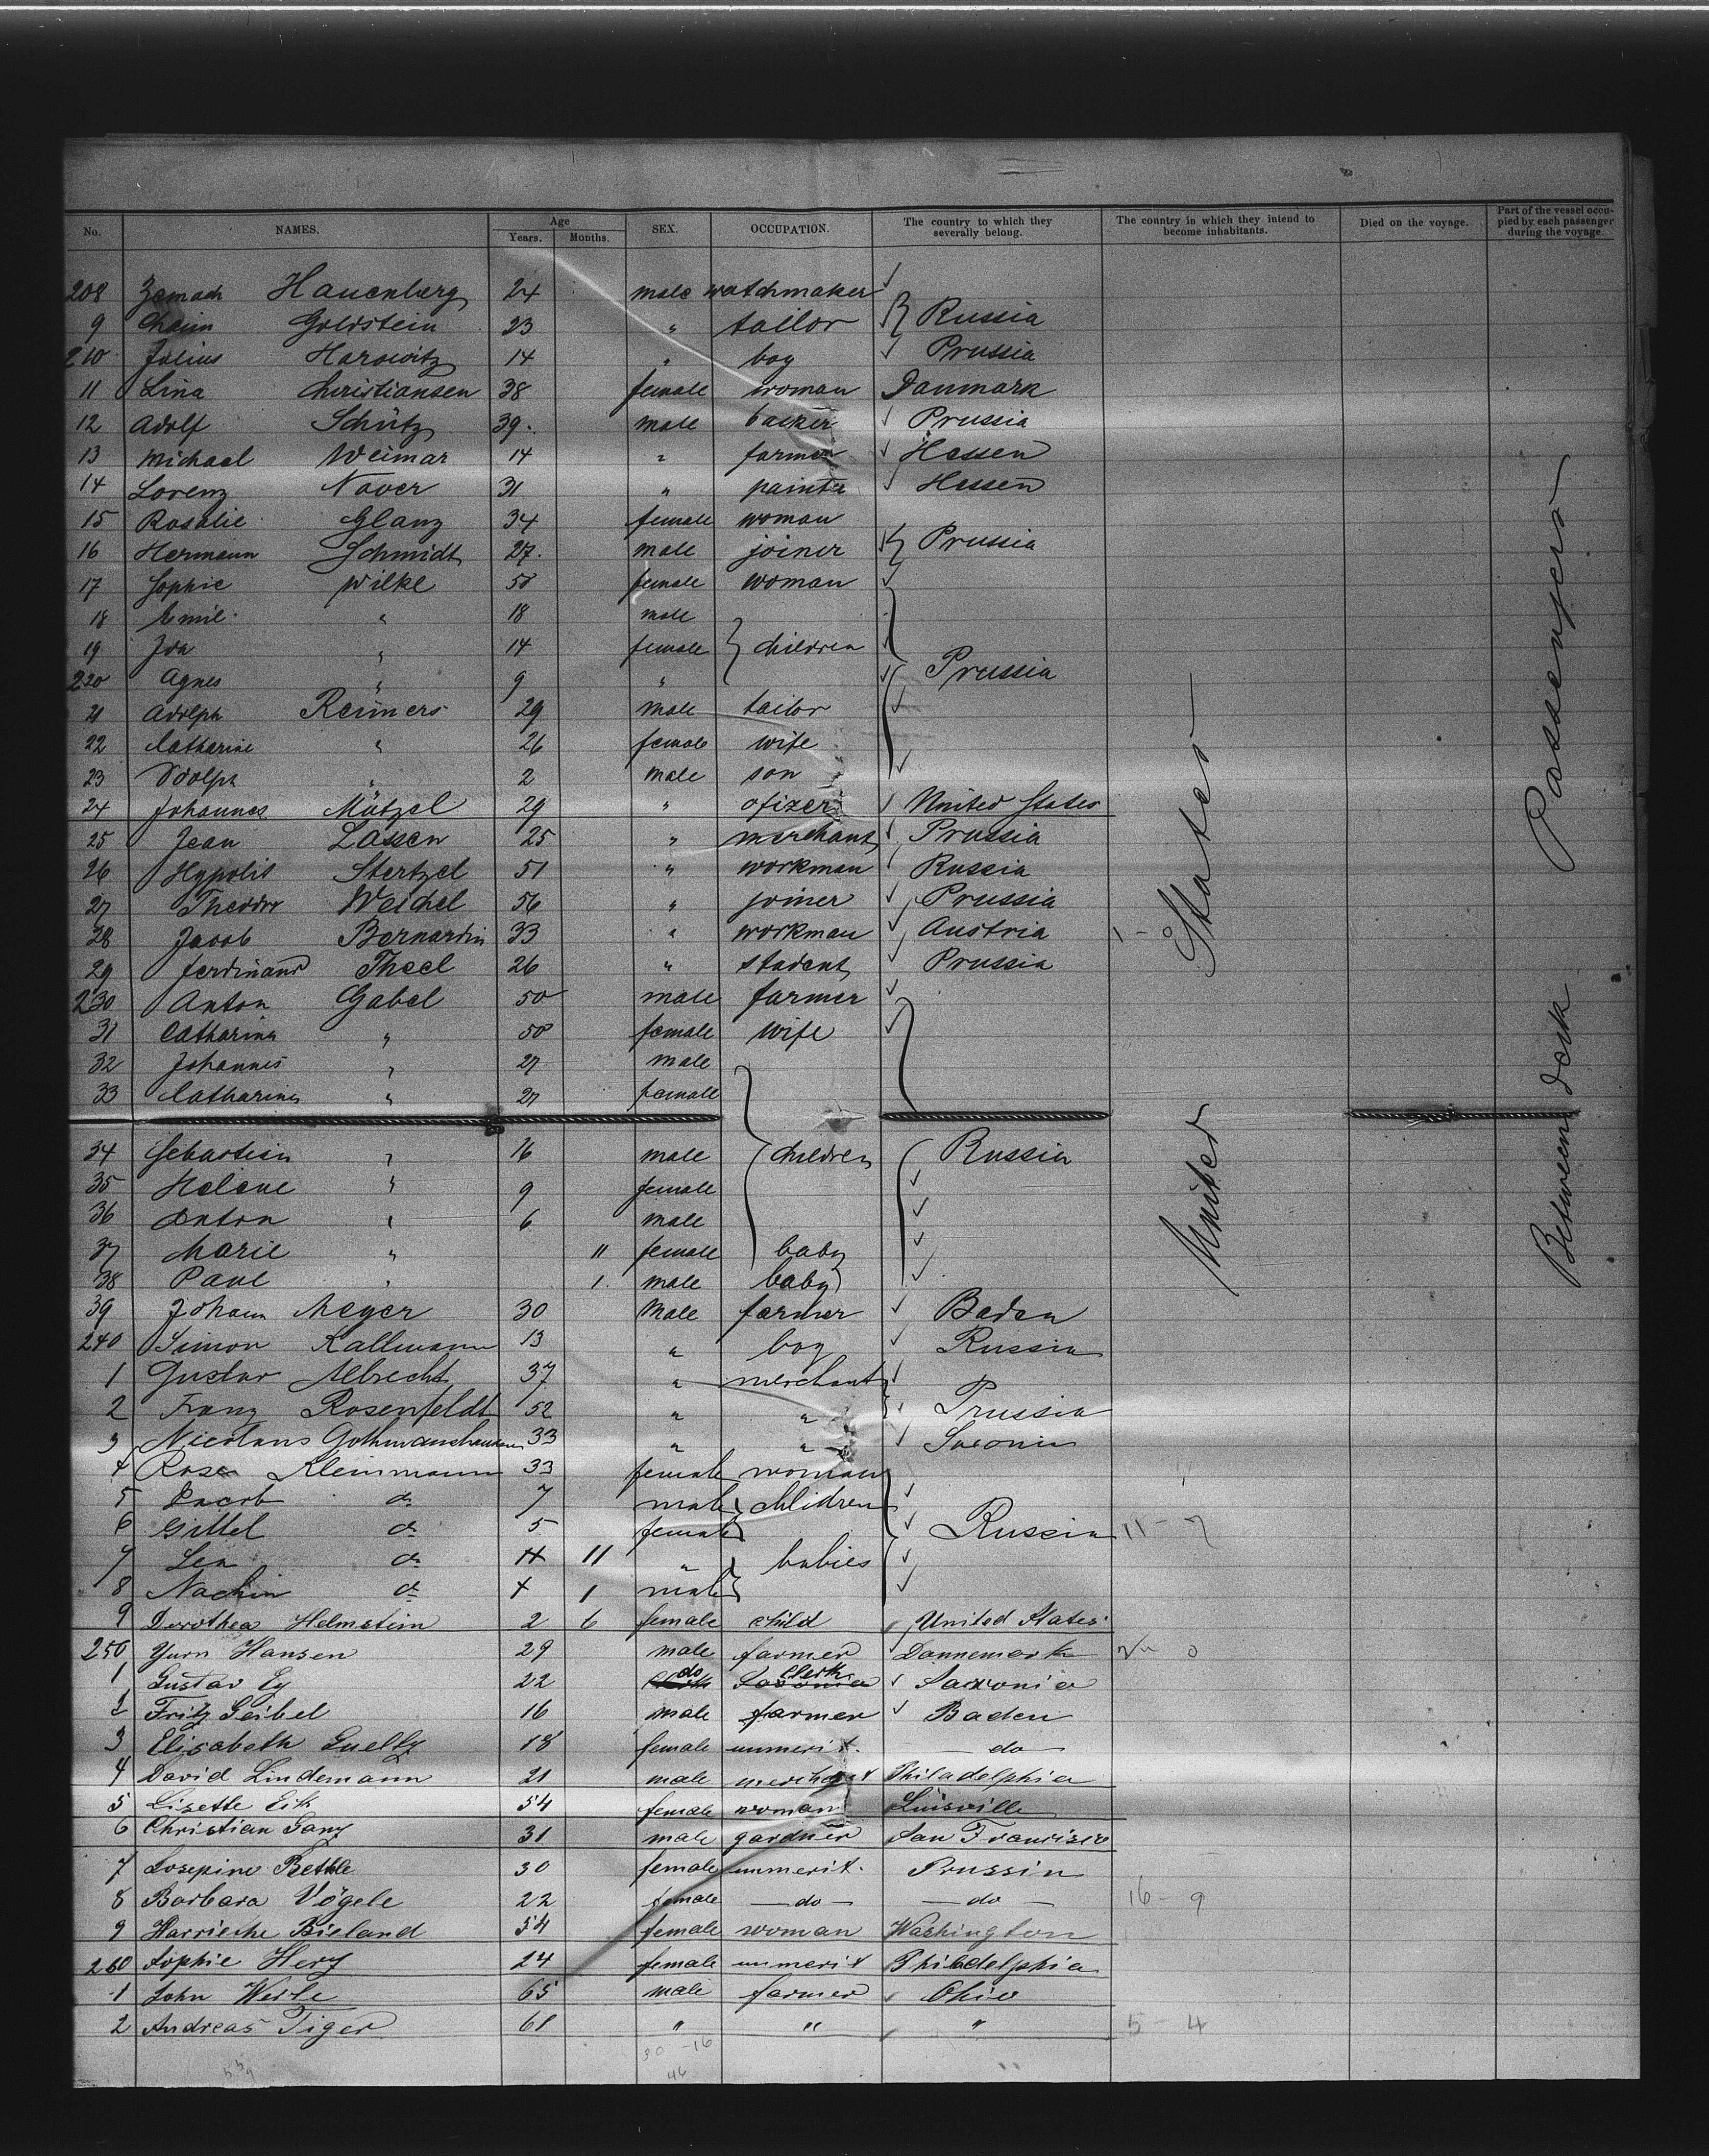 No. NAMES. Age Years. Months. SEX. OCCUPATION. The country to which they severally belong. The country in which they intend to become inhabitants. Died on the voyage. Part of the vessel occupied by each passenger during the voyage.
208 Zemach Hauenberg 24 male watchmaker
9 Chaim Goldstein 23 " tailor Russia
210 Julius Horowitz 14 " boy Prussia
11 Lina Christiansen 38 female woman Danmark
12 Adolf Schütz 39. male backer Prussia
13 Michael Weimar 14 " farmer Hessen
14 Lorenz Naver 31 " painter Hessen
15 Rosalie Glanz 34 female woman
16 Hermann Schmidt 27. male joiner Prussia
17 Sophie Wilke 50 female woman
18 Emil " 18 male
19 Ida " 14 female children
220 Agnes " 9 " Prussia
21 Adolph Reimers 29 male tailor
22 Catharine " 26 female wife
23 Adolph " 2 male son
24 Johannes Mützel 29 " ofizer United States
25 Jean Lassen 25 " merchant Prussia
26 Hypolit Stertzel 51 " workman Russia
27 Theodor Weichel 56 " joiner Prussia
28 Jacob Bernardin 33 " workman Austria 1 - 0
29 Ferdinand Theel 26 " student Prussia
230 Anton Gabel 50 male farmer
31 Catharina " 50 female wife
32 Johannes " 27 male
33 Catharina " 27 female
34 Sebastian " 16 male children Russia
35 Helene " 9 female
36 Anton " 6 male
37 Marie " 11 female baby
38 Paul " 1 male baby
39 Johann Meyer 30 male farmer Baden
240 Simon Kallmann 13 " boy Russia
1 Gustav Albrecht 37 " merchant
2 Franz Rosenfeldt 52 " " Prussia
3 Nicolaus Gothmanshausen 33 " " Saxonia
4 Rosa Kleinmann 33 female woman
5 Jacob do 7 male children
6 Gittel do 5 female Russia 11 - 7
7 Lea do 11 " babies
8 Nachin do 1 male
9 Dorothea Helmstein 2 6 female child United States
250 Yurn Hansen 29 male farmer Dannemark 0
1 Gustav Ey 22 do Clerk Saxonia
2 Fritz Geibel 16 male farmer Baden
3 Elisabeth Guelty 18 female unmerit. do
4 David Lindemann 21 male merchant Philadelphia
5 Lisette Eik 54 female woman Luisville
6 Christian Ganz 31 male gardner San Francisco
7 Josepine Bethle 30 female unmerit. Prussia
8 Barbara Vögele 22 female do do 16 - 9
9 Harriethe Bieland 54 female woman Washington
260 Sophie Herz 24 female unmerit Philadelphia
1 John Werle 65 male farmer Ohio
2 Andreas Tiger 61 " " " 5 - 4
30 - 16
46
United States
Between deck Passengers